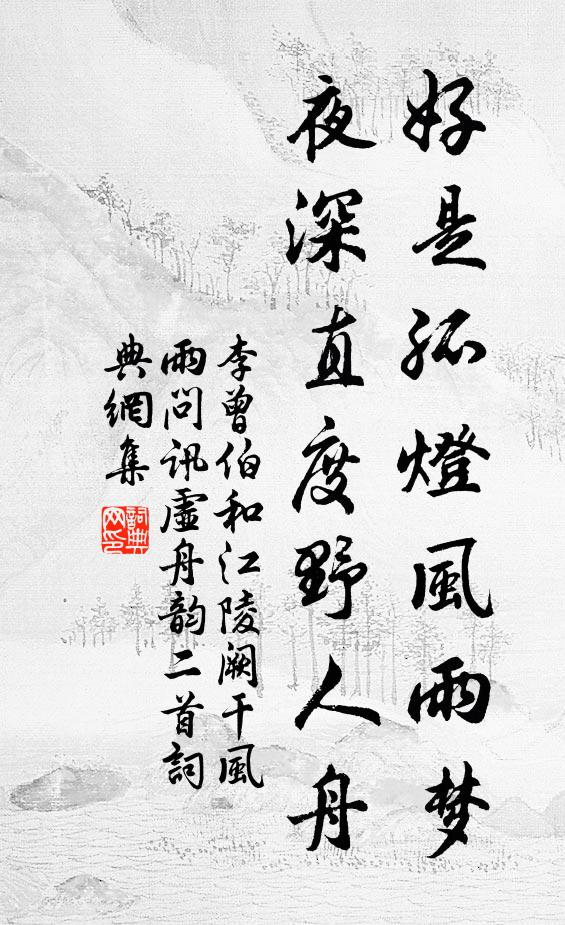 好是孤燈風雨梦
夜深直度野人舟
李曾伯和江陵阙干風
雨问讯虛舟韵二首詞
典網集
詞典
网印